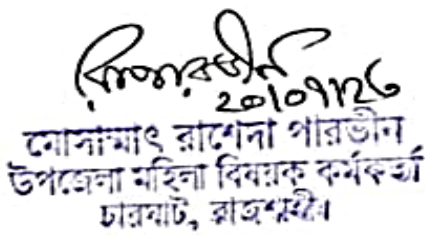 ২০/০৭/২৬
মোসাম্মাৎ রাশেদা পারভীন
উপজেলা মহিলা বিষয়ক কর্মকর্তা
চারঘাট, রাজশাহী।